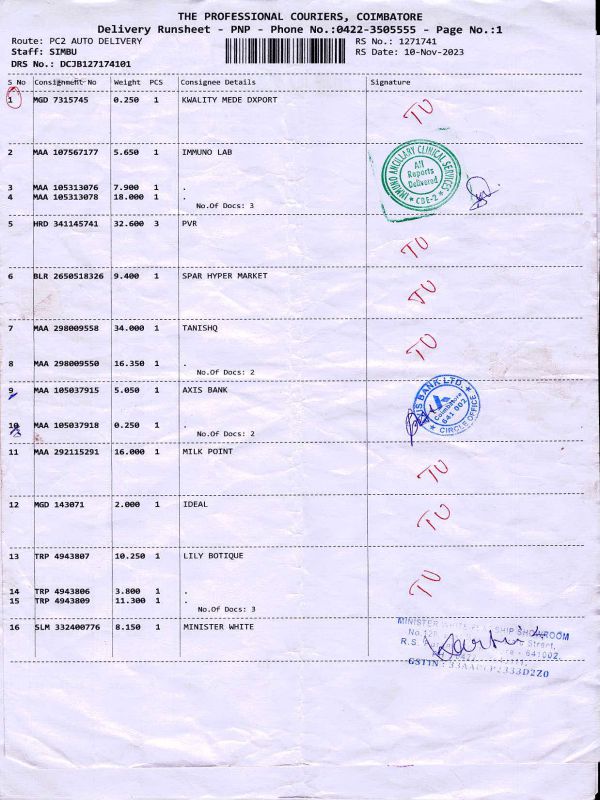 THE PROFESSIONAL COURIERS, COIMBATORE
Delivery Runsheet - PNP - Phone No.:0422-3505555 - Page No.:1
Route: PC2 AUTO DELIVERY RS No.: 1271741
Staff: SIMBU RS Date: 10-Nov-2023
DRS No.: DCJB127174101
S No Consignment No Weight PCS Consignee Details Signature
1 MGD 7315745 0.250 1 KWALITY MEDE DXPORT TU
2 MAA 107567177 5.650 1 IMMUNO LAB
IMMUNO ANCILLARY CLINICAL SERVICES
All
Reports
Delivered
* CBE-2 *
3 MAA 105313076 7.900 1 .
4 MAA 105313078 18.000 1 .
No.Of Docs: 3
5 HRD 341145741 32.600 3 PVR TU
6 BLR 2650518326 9.400 1 SPAR HYPER MARKET TU
7 MAA 298009558 34.000 1 TANISHQ TU
8 MAA 298009550 16.350 1 .
No.Of Docs: 2
9 MAA 105037915 5.050 1 AXIS BANK
BANK LTD.
Coimbatore
641 002
* CIRCLE OFFICE *
10 MAA 105037918 0.250 1 .
No.Of Docs: 2
11 MAA 292115291 16.000 1 MILK POINT TU
12 MGD 143071 2.000 1 IDEAL TU
13 TRP 4943807 10.250 1 LILY BOTIQUE TU
14 TRP 4943806 3.800 1 .
15 TRP 4943809 11.300 1 .
No.Of Docs: 3
16 SLM 332400776 8.150 1 MINISTER WHITE
MINISTER WHITE SHIP SHOWROOM
Street,
R.S. 641002
GSTIN :